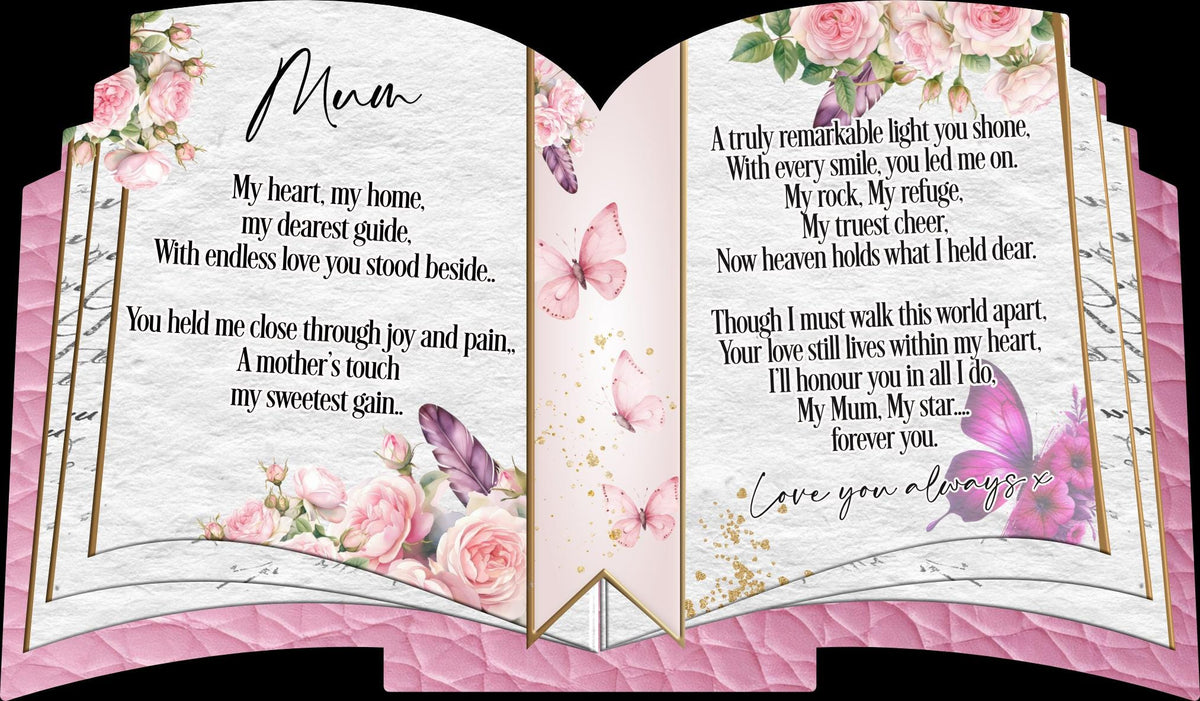 Mum
My heart, my home,
my dearest guide,
With endless love you stood beside..
You held me close through joy and pain,,
A mother's touch
my sweetest gain..
A truly remarkable light you shone,
With every smile, you led me on.
My rock, My refuge,
My truest cheer,
Now heaven holds what I held dear.
Though I must walk this world apart,
Your love still lives within my heart,
I'll honour you in all I do,
My Mum, My star....
forever you.
Love you always x